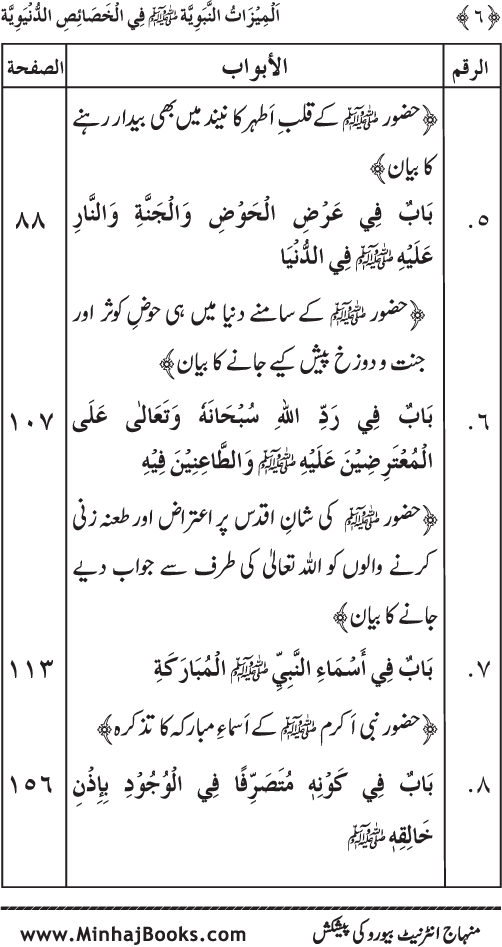 ﴿٦﴾ اَلْمِيْزَاتُ النَّبَوِيَّة ﷺ فِي الْخَصَائِصِ الدُّنْيَوِيَّة
الرقم الأبواب الصفحة
﴿حضور ﷺ کے قلبِ اَطہر کا نیند میں بھی بیدار رہنے
کا بیان﴾
٥. بَابٌ فِي عَرْضِ الْحَوْضِ وَالْجَنَّةِ وَالنَّارِ ٨٨
عَلَيْهِ ﷺ فِي الدُّنْيَا
﴿حضور ﷺ کے سامنے دنیا میں ہی حوضِ کوثر اور
جنت و دوزخ پیش کیے جانے کا بیان﴾
٦. بَابٌ فِي رَدِّ اللهِ سُبْحَانَهٗ وَتَعَالٰى عَلَى ١٠٧
الْمُعْتَرِضِيْنَ عَلَيْهِ ﷺ وَالطَّاعِنِيْنَ فِيْهِ
﴿حضور ﷺ کی شانِ اقدس پر اعتراض اور طعنہ زنی
کرنے والوں کو اللہ تعالیٰ کی طرف سے جواب دیے
جانے کا بیان﴾
٧. بَابٌ فِي أَسْمَاءِ النَّبِيِّ ﷺ الْمُبَارَكَةِ ١١٣
﴿حضور نبی اَکرم ﷺ کے اَسماءِ مبارکہ کا تذکرہ﴾
٨. بَابٌ فِي كَوْنِهٖ مُتَصَرِّفًا فِي الْوُجُوْدِ بِإِذْنِ ١٥٦
خَالِقِهٖ ﷺ
منہاج انٹرنیٹ بیورو کی پیشکش www.MinhajBooks.com